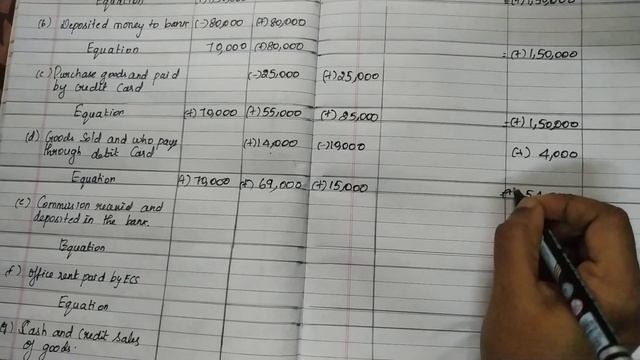 Equation
(b) Deposited money to bank (-)80,000 (+)80,000
Equation 70,000 (+)80,000 = (+)1,50,000
(c) Purchase goods and paid (-)25,000 (+)25,000
by credit card
Equation (+)70,000 (+)55,000 (+)25,000 =(+)1,50,000
(d) Goods Sold and who pays (+)14,000 (-)10,000 (+) 4,000
through debit Card
Equation (+)70,000 (+)69,000 (+)15,000
(e) Commission received and
deposited in the bank.
Equation
(f) Office rent paid by ECS
Equation
(g) Cash and Credit Sales
of goods.